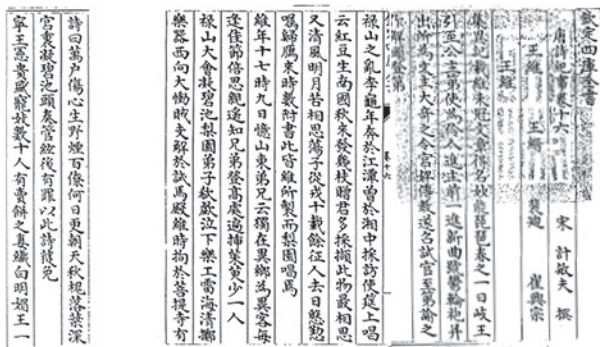 欽定四庫全書
唐詩紀事卷十六
宋 計敏夫 撰
王維 王縉 裴迪 崔興宗
王維
集異記載維未冠文章得名妙能琵琶春之一日岐王
引至公主第使為伶人進主前一進新曲號鬱輪袍并
出所為文主大奇之令宮婢傳教遂召試官至第諭之
作解頭登第
卷十六
禄山之亂李龜年奔於江潭曾於湘中採訪使筵上唱
云紅豆生南國秋來發幾枝贈君多採擷此物最相思
又清風明月苦相思蕩子從戎十載餘征人去日慇懃
囑歸鴈來時數附書此皆維所製而梨園唱焉
維年十七時九日憶山東弟兄云獨在異鄉為異客每
逢佳節倍思親遙知兄弟登高處遍插茱萸少一人
禄山大會凝碧池梨園弟子欷歔泣下樂工雷海清擲
樂器西向大慟賊支解於試馬殿維時拘於菩提寺有
詩曰萬户傷心生野煙百僚何日更朝天秋槐落葉深
宮裏凝碧池頭奏管絃後有罪以此詩獲免
寧王憲貴盛寵妓數十人有賣餅之妻纖白明媚王一